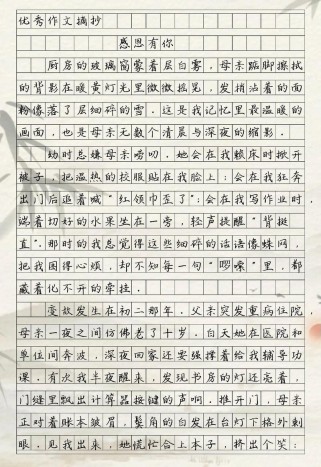 优秀作文摘抄
感恩有你
厨房的玻璃窗蒙着层白雾，母亲踮脚擦拭
的背影在暖黄灯光里微微摇晃，发梢沾着的面
粉像落了层细碎的雪。这是我记忆里最温暖的
画面，也是母亲无数个清晨与深夜的缩影。
幼时总嫌母亲唠叨。她会在我赖床时掀开
被子，把温热的校服贴在我脸上；会在我狂奔
出门后追着喊“红领巾歪了”；会在我写作业时，
端着切好的水果坐在一旁，轻声提醒“背挺
直”。那时的我总觉得这些细碎的话语像蛛网，
把我困得心烦，却不知每一句“啰嗦”里，都
藏着化不开的牵挂。
变故发生在初二那年，父亲突发重病住院，
母亲一夜之间仿佛老了十岁。白天她在医院和
单位间奔波，深夜回家还要强撑着给我辅导功
课。有次我半夜醒来，发现书房的灯还亮着，
门缝里飘出计算器按键的声响。推开门，母亲
正对着账本皱眉，鬓角的白发在台灯下格外刺
眼。见我出来，她慌忙合上本子，挤出个笑：